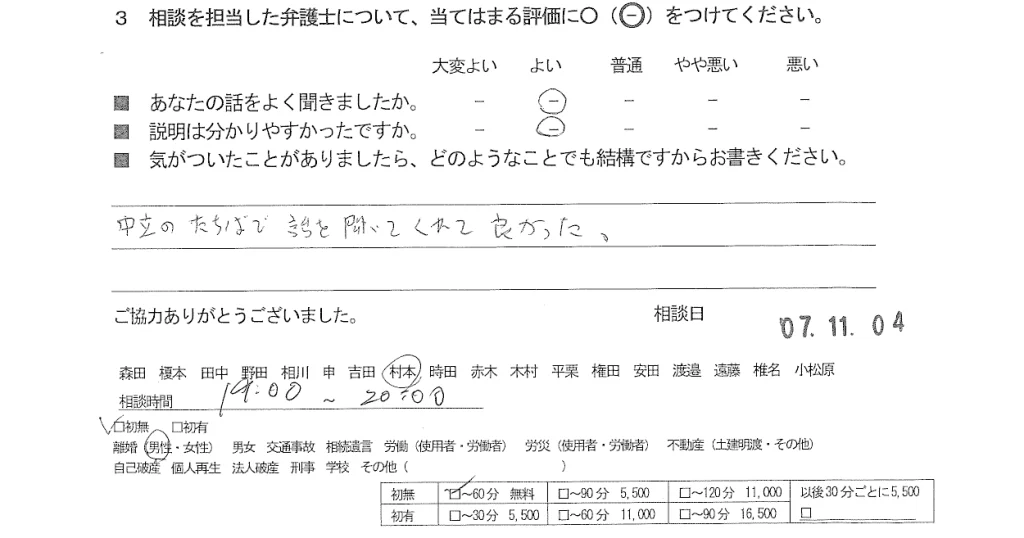 3 相談を担当した弁護士について、当てはまる評価に○(⊖)をつけてください。
大変よい よい 普通 やや悪い 悪い
■ あなたの話をよく聞きましたか。 － － － － －
■ 説明は分かりやすかったですか。 － － － － －
■ 気がついたことがありましたら、どのようなことでも結構ですからお書きください。
中立のたちばで話を聞いてくれて良かった。
ご協力ありがとうございました。 相談日 '07.11.04
森田 榎本 田中 野田 相川 申 吉田 村本 時田 赤木 木村 平栗 権田 安田 渡邉 遠藤 椎名 小松原
相談時間 19:00 ~ 20:00
□初無 □初有
離婚(男性・女性) 男女 交通事故 相続遺言 労働(使用者・労働者) 労災(使用者・労働者) 不動産(土建明渡・その他)
自己破産 個人再生 法人破産 刑事 学校 その他( )
初無 □～60分 無料 □～90分 5,500 □～120分 11,000 以後30分ごとに5,500
初有 □～30分 5,500 □～60分 11,000 □～90分 16,500 □